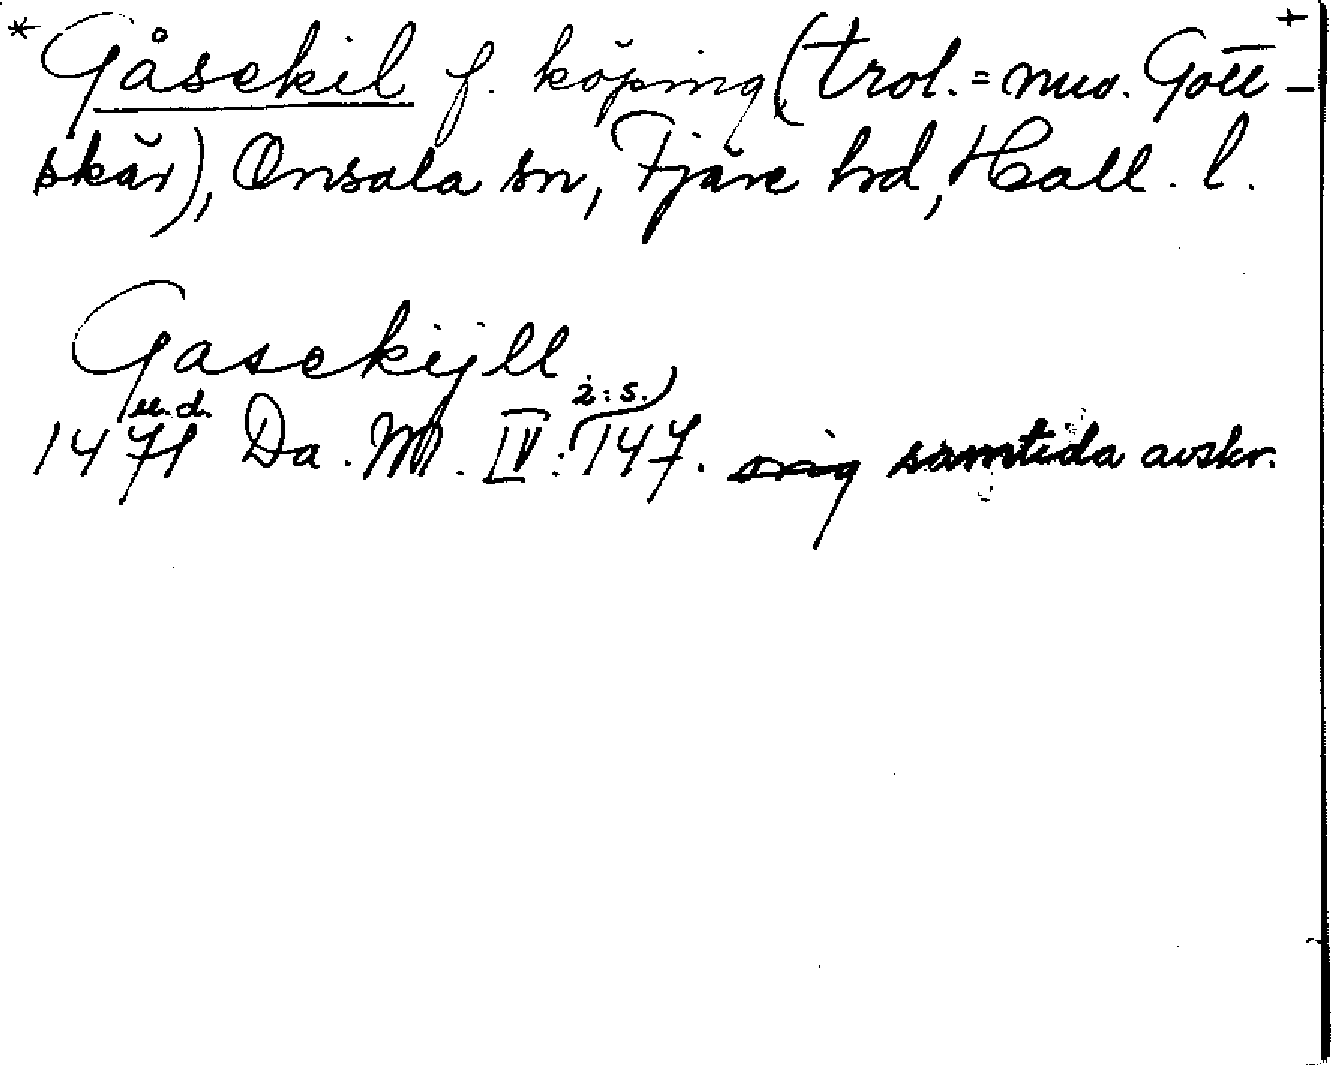 * Gåsekil f. köping (trol. = nuv. Gott- +
skär), Onsala sn, Fjäre hd, Hall. l.
Gasekijll
u.d. 2:s.
1471 Da. M. IV: 147. samtida avskr.